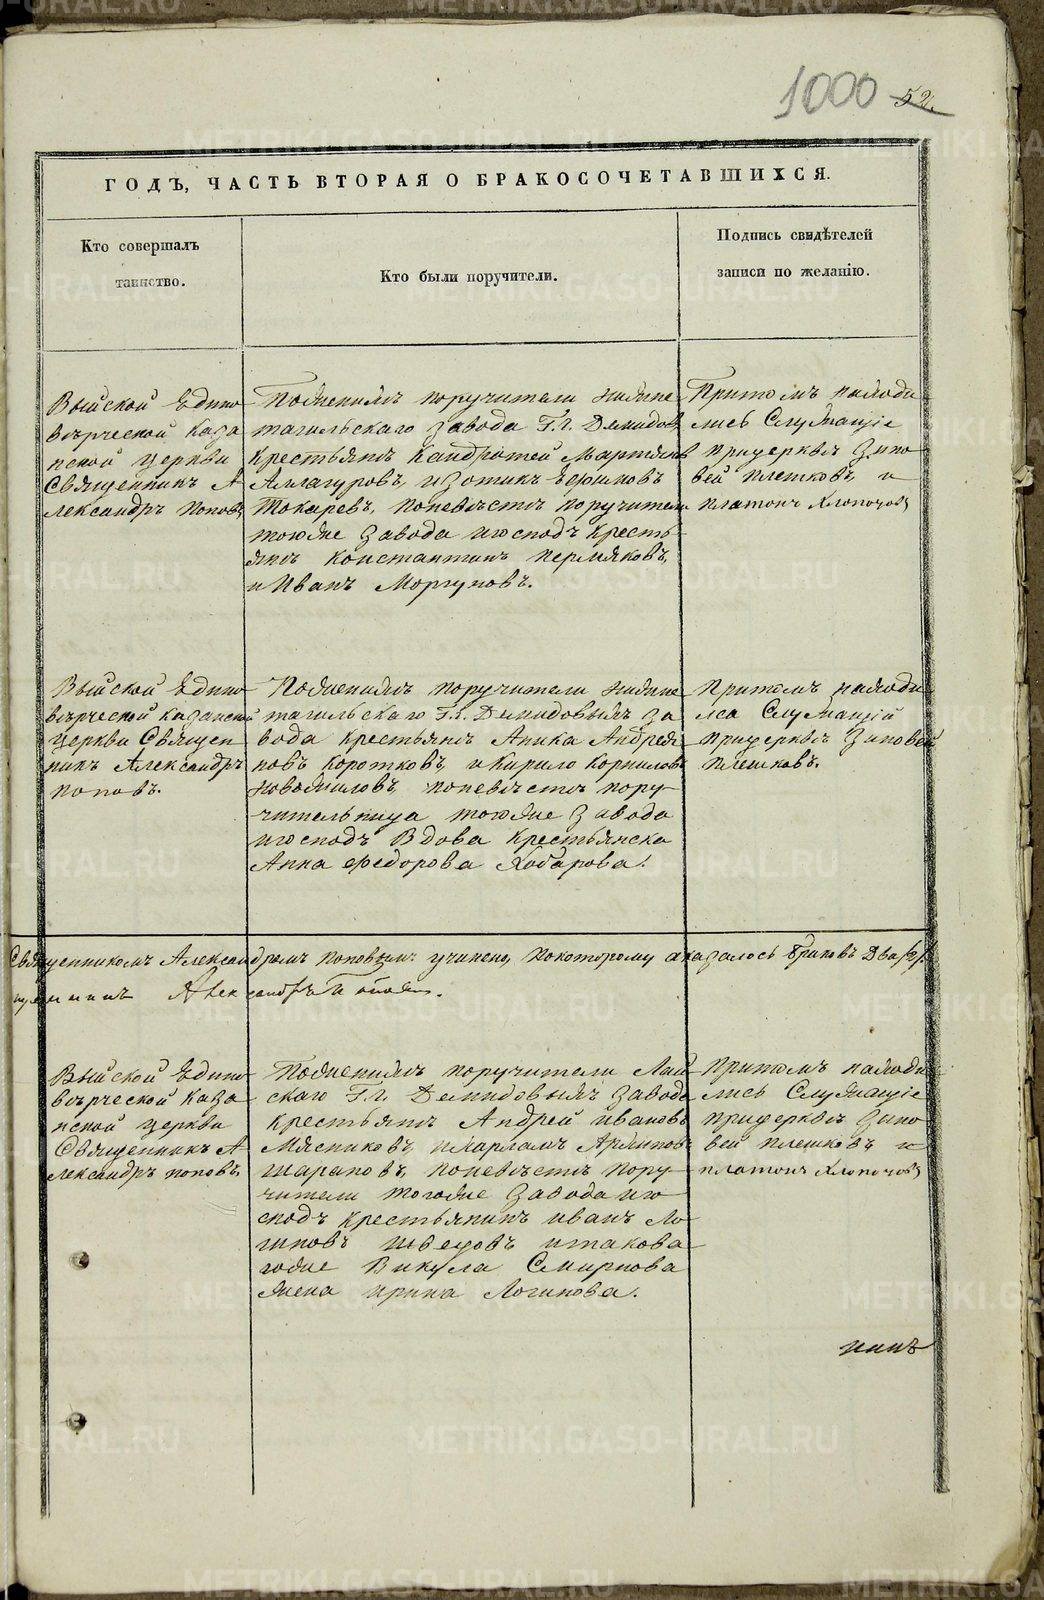 1000 52.
ГОДЪ, ЧАСТЬ ВТОРАЯ О БРАКОСОЧЕТАВШИХСЯ.
Кто совершалъ
таинство.
Кто были поручители.
Подпись свидѣтелей
записи по желанію.
Выйской Едино
вѣрческой Каза
нской церкви
Священникъ А
лександръ Поповъ
По женихѣ поручители Нижне
тагильскаго завода Г.г. Демидов
крестьяне Кандратей Мартынов
и Зотикъ Ефимовъ
Токаревъ, по невѣстѣ поручители
тогоже завода и господъ кресть
яне Константинъ Пермяковъ,
и Иванъ Моргуновъ.
Притомъ находи
лись Служащіе
при церквѣ Зино
вей Плешковъ, и
Платонъ Хлопочовъ
Выйской Едино
вѣрческой Казанской
церкви Священ
никъ Александръ
Поповъ.
По женихѣ поручители Нижне
тагильскаго Г.г. Демидовыхъ за
вода крестьяне Аника Андрея
новъ Коротковъ, и Кирило Корниловъ
Новожиловъ по невѣстѣ пору-
чительница тогоже завода
и господъ Вдова Крестьянска
Анна Федорова Хабарова.
Притомъ находи
лса Служащій
при церквѣ Зиновей
Плешковъ.
Священникомъ Александромъ Поповымъ учинено, по которому оказалось браковъ Два /2/
Александръ Поповъ.
Выйской Едино
вѣрческой Каза
нской церкви
Священникъ А
лександръ Поповъ,
По женихѣ поручители Лай
скаго Г.г. Демидовыхъ завода
крестьяне Андрей Ивановъ
Мясниковъ, и Варламъ
Шараповъ, по невѣстѣ пору-
чители тогоже завода и го
сподъ крестьянинъ Иванъ Ло
гиновъ Швецовъ и такова
гоже Викула Смирнова
жена Ирина Логинова.
Притомъ находи
лись Служащіе
при церквѣ Зино
вей Плешковъ, и
Платонъ Хлопочовъ
никъ
METRIKI.GASO-URAL.RU